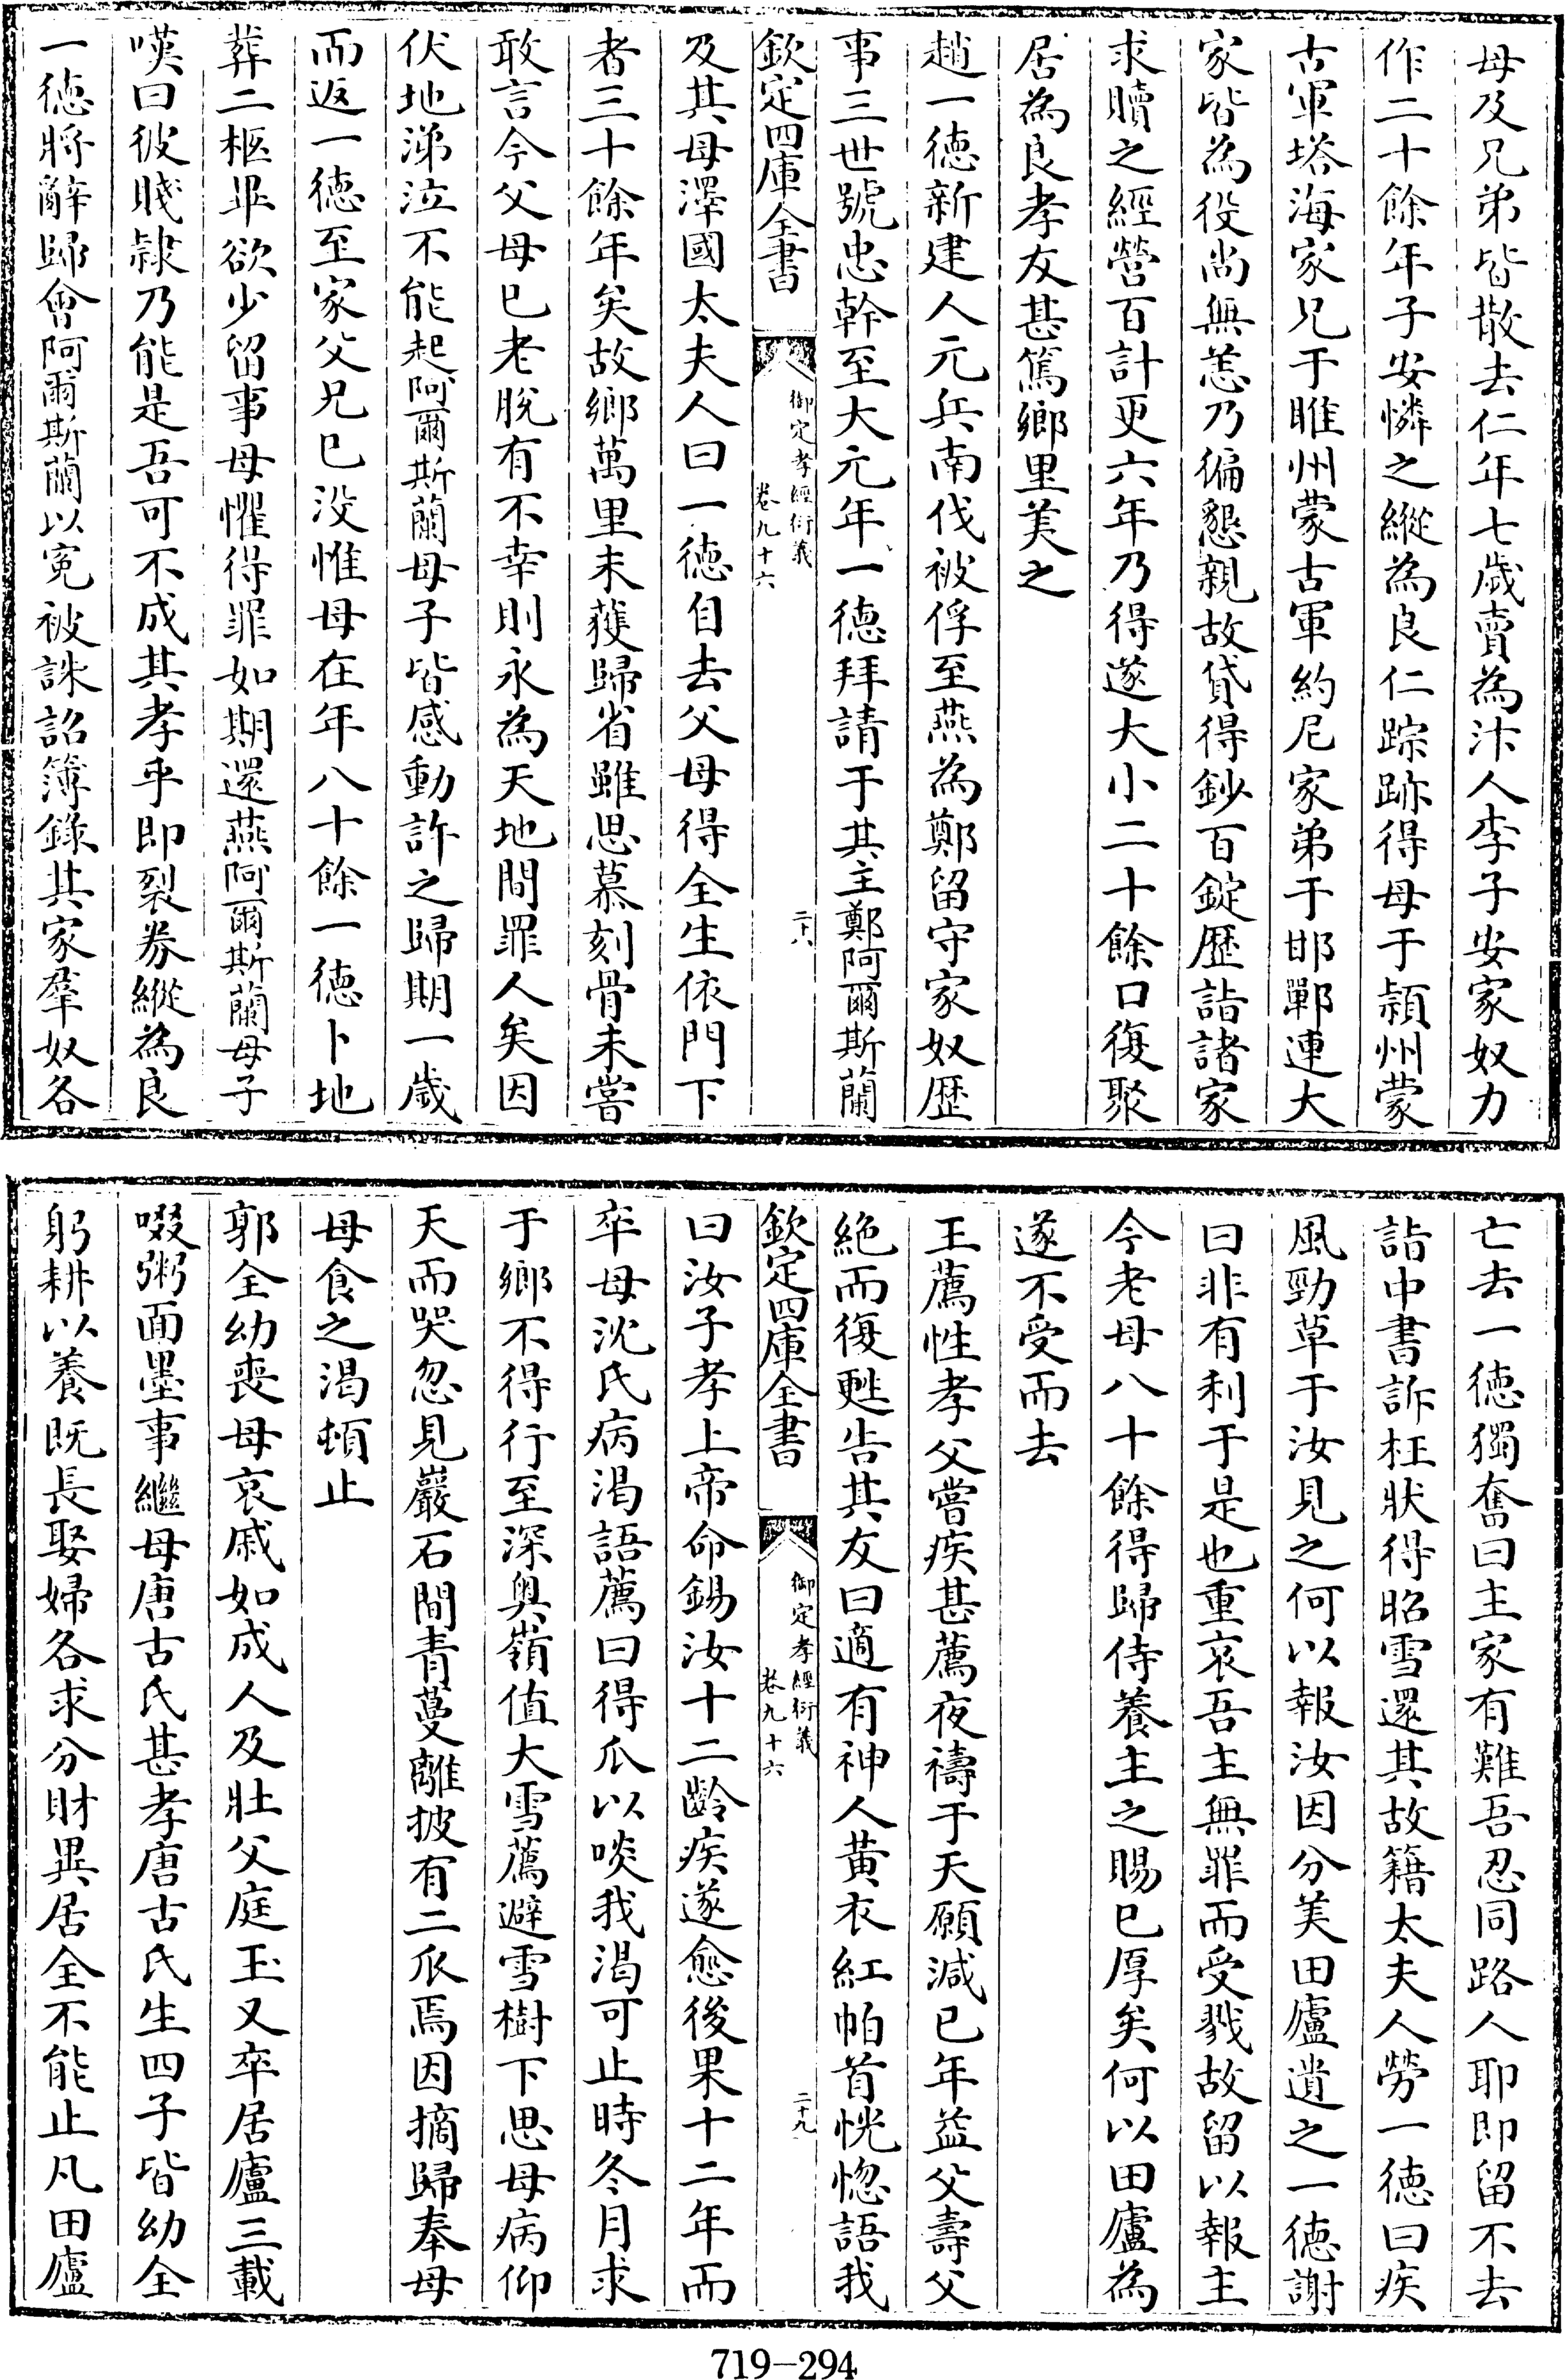 母及兄弟皆散去仁年七歲賣為汴人李子安家奴力
作二十餘年子安憐之縱為良仁踪跡得母于潁州蒙
古軍塔海家兄于睢州蒙古軍約尼家弟于邯鄲連大
家皆為役尚無恙乃徧懇親故貸得鈔百錠歷詣諸家
求贖之經營百計更六年乃得遂大小二十餘口復聚
居為良孝友甚篤鄉里美之
趙一德新建人元兵南伐被俘至燕為鄭留守家奴歷
事三世號忠幹至大元年一德拜請于其主鄭阿爾斯蘭
欽定四庫全書
御定孝經衍義
卷九十六
二十八
及其母澤國太夫人曰一德自去父母得全生依門下
者三十餘年矣故鄉萬里未獲歸省雖思慕刻骨未嘗
敢言今父母已老脫有不幸則永為天地間罪人矣因
伏地涕泣不能起阿爾斯蘭母子皆感動許之歸期一歲
而返一德至家父兄已没惟母在年八十餘一德卜地
葬二柩畢欲少留事母懼得罪如期還燕阿爾斯蘭母子
嘆曰彼賤隸乃能是吾可不成其孝乎即裂券縱為良
一德將辭歸會阿爾斯蘭以寃被誅詔簿錄其家羣奴各
亡去一德獨奮曰主家有難吾忍同路人耶即留不去
詣中書訴枉狀得昭雪還其故籍太夫人勞一德曰疾
風勁草于汝見之何以報汝因分美田廬遺之一德謝
曰非有利于是也重哀吾主無罪而受戮故留以報主
今老母八十餘得歸侍養主之賜已厚矣何以田廬為
遂不受而去
王薦性孝父嘗疾甚薦夜禱于天願減己年益父壽父
絶而復甦告其友曰適有神人黃衣紅帕首恍惚語我
欽定四庫全書
御定孝經衍義
卷九十六
二十九
曰汝子孝上帝命錫汝十二齡疾遂愈後果十二年而
卒母沈氏病渴語薦曰得瓜以啖我渴可止時冬月求
于鄉不得行至深奥嶺值大雪薦避雪樹下思母病仰
天而哭忽見巖石間青蔓離披有二瓜焉因摘歸奉母
母食之渴頓止
郭全幼喪母哀戚如成人及壯父庭玉又卒居廬三載
啜粥面墨事繼母唐古氏甚孝唐古氏生四子皆幼全
躬耕以養既長娶婦各求分財異居全不能止凡田廬
719-294